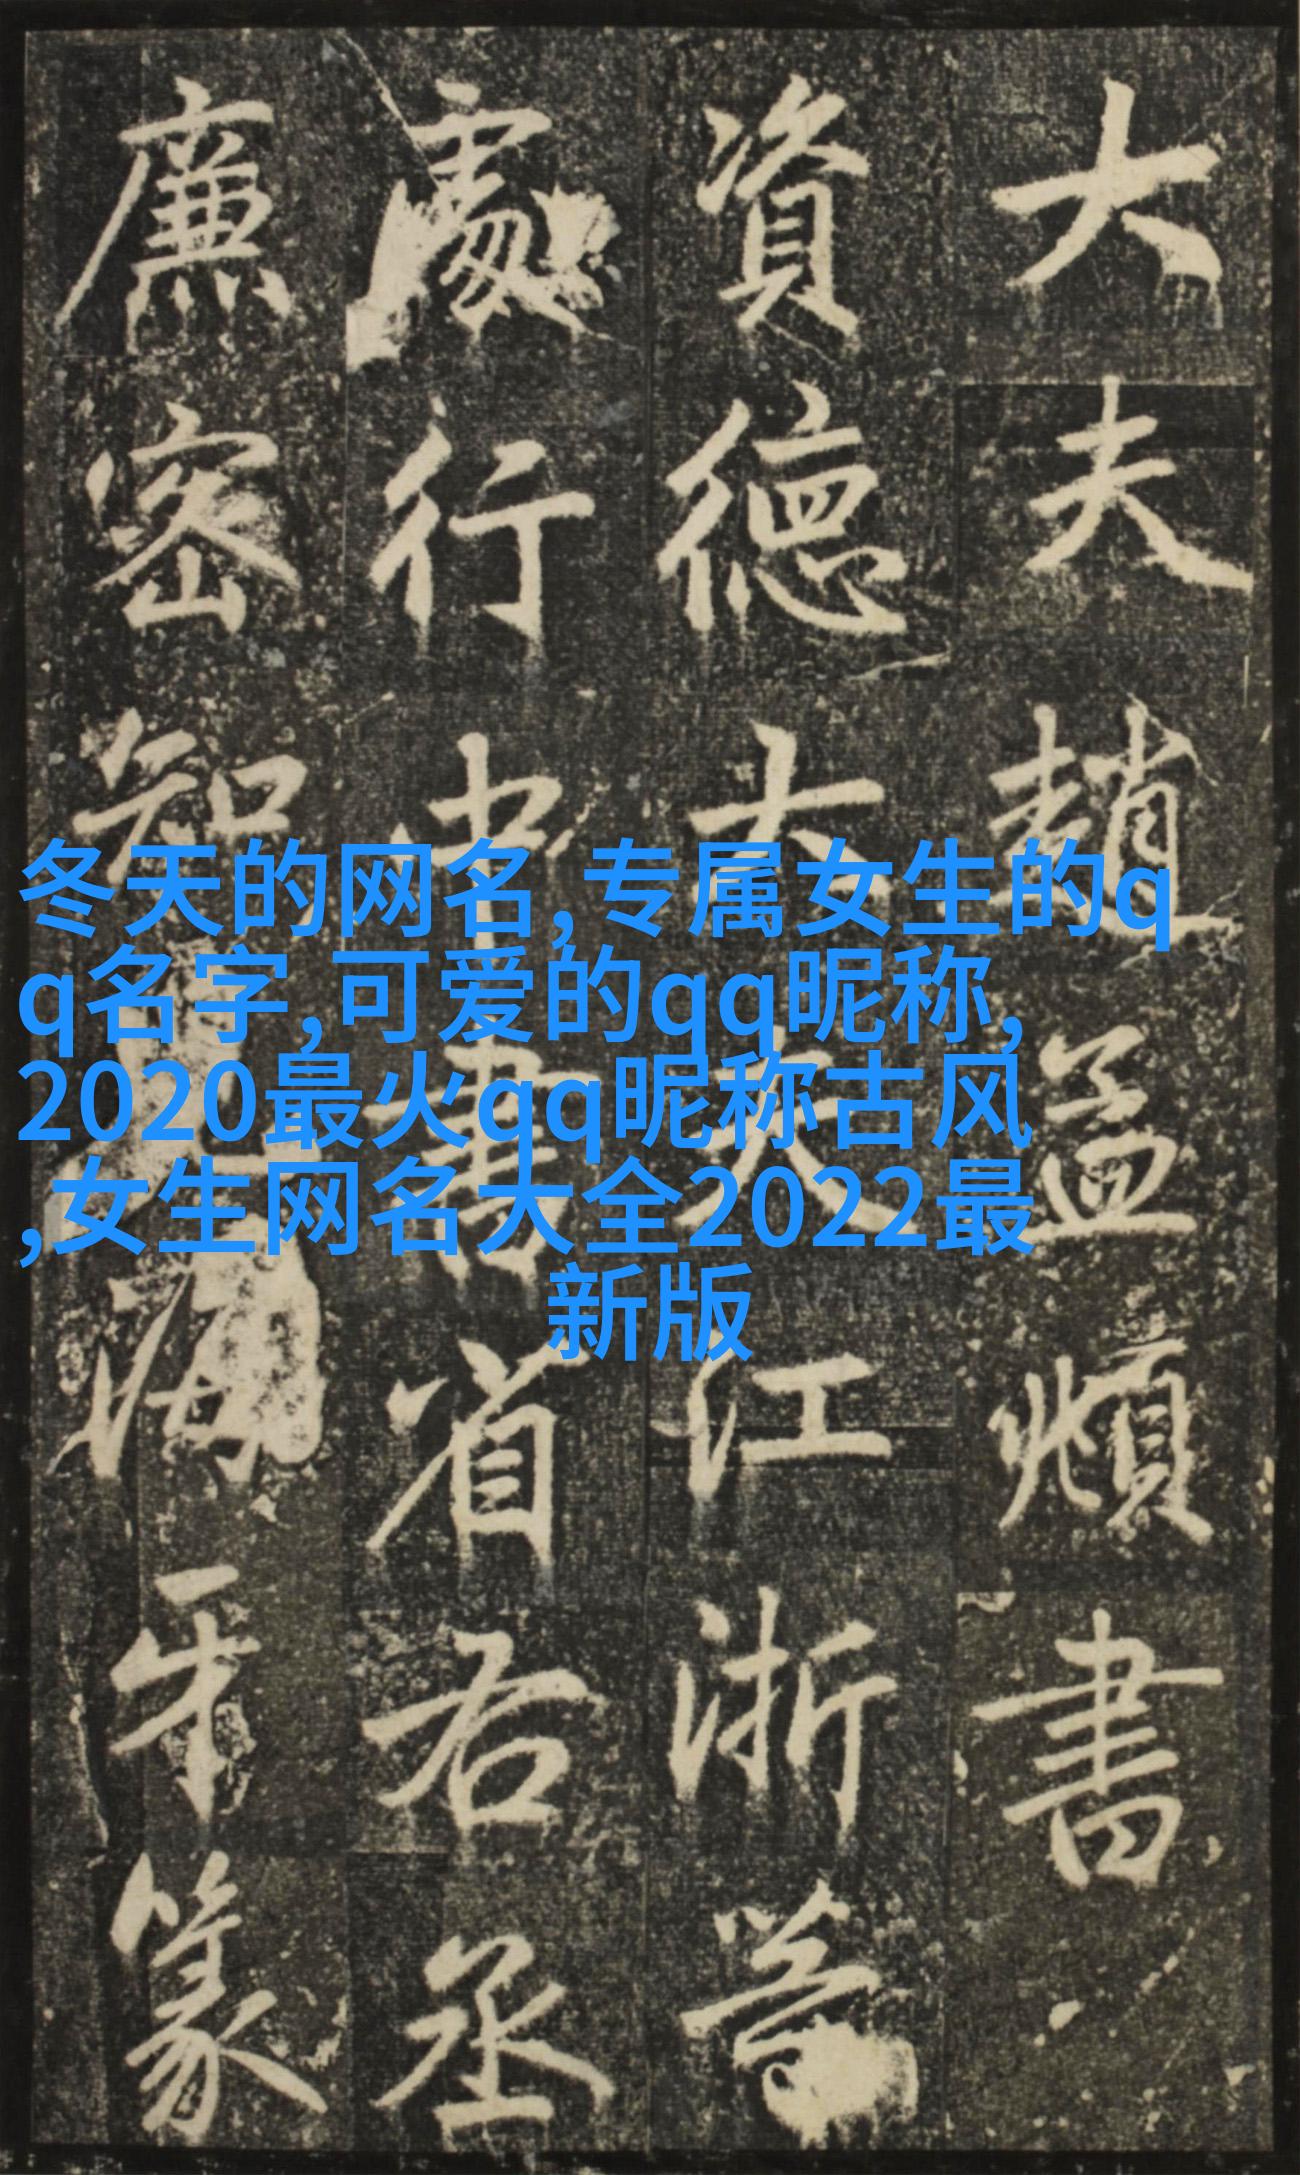 大夫趙孟頫書
資德大夫江浙等
處行中書省右丞
廉密知兒海牙篆
冬天的网名,专属女生的q
q名字,可爱的qq昵称,
2020最火qq昵称古风
,女生网名大全2022最
新版